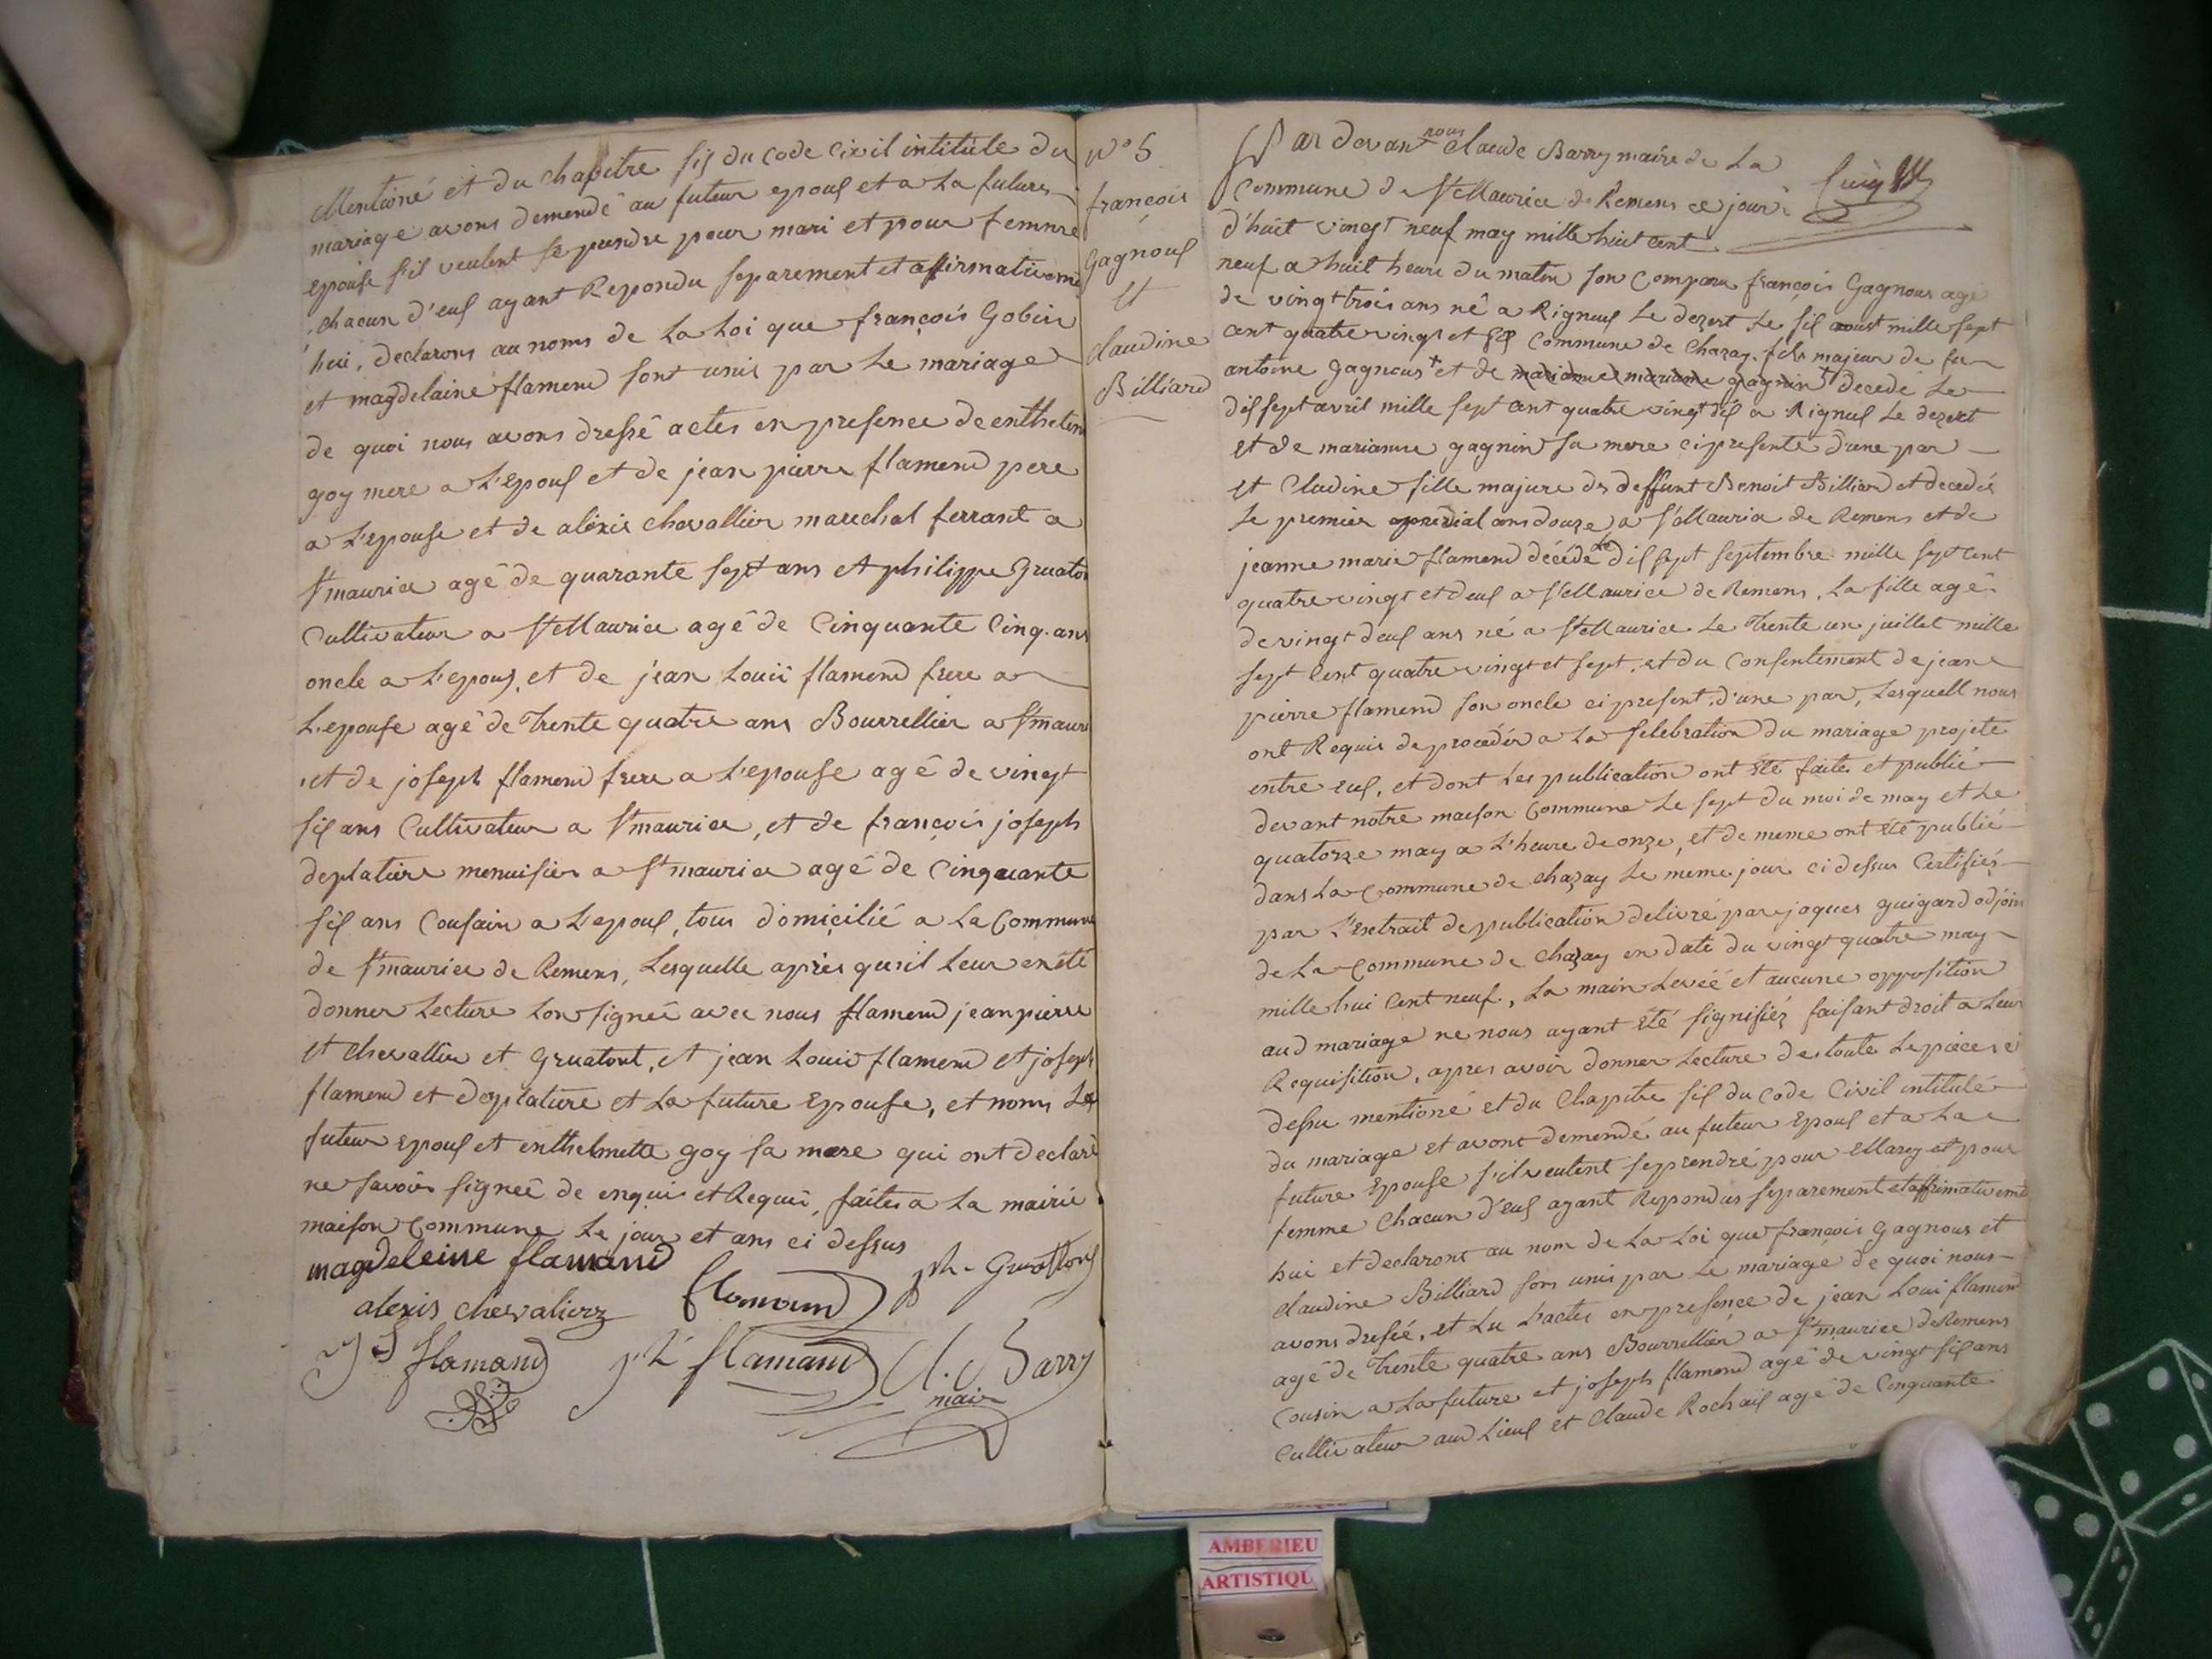 Mentioné et du chapitre six du code civil intitule du
mariage avons demendé au futeur epoux et a La future
epouse s'il veulent se prendre pour mari et pour femme
chacun d'eux ayant Repondu separement et affirmativeme
hui, declarons au noms de La Loi que françois Gobin
et magdelaine flamend sont unis par Le mariage
de quoi nous avons dressé actes en presence de enthelm
goy mere a L'epoux et de jean pierre flamend pere
a L'epouse et de alexis chevallier marechal ferrant a
St maurice agé de quarante sept ans et philippe Gruaton
Cultivateur a St Maurice agé de Cinquante Cinq ans
oncle a L'epoux, et de jean Louis flamend frere a
L'epouse agé de Trente quatre ans Bourrellier a St maurice
et de joseph flamend frere a L'epouse agé de vingt
six ans Cultivateur a St maurice, et de françois joseph
deplatiere menuisier a St maurice agé de Cinquante
six ans Cousain a L'epoux, tous domicilié a La Commune
de St maurice de Remens, Lesquelle apries qu'il Leur en été
donner Lecture Lon signeé avec nous flamend jean pierre
et chevallier et gruatont, et jean Louis flamend et joseph
flamend et deplatiere et La future Epouse, et noms Le
futeur Epoux et enthelmette goy sa mere qui ont declaré
ne savoir signeé de enquis et Requi, faites a La mairie
maison Commune Le jour et ans ci dessus
magdeleine flamand
flamand
ph. Gruatton
alexis chevalier
js flamand
j L flamand
Cl. Barry
maire
N° 5
françois
Gagnoux
et
claudine
Billiard
Par devant nous claude Barry maire de La
Commune de St Maurice de Remens ce jour
d'huit vingt neuf may mille huit cent
neuf a huit heure du matin son Comparu françois Gagnoux agé
de vingt trois ans né a Rigneux Le dezert Le six aoust mille sept
cent quatre vingt et six Commune de Chazay fils majeur de feu
antoine gagnoux et de marianne marianne gagnin decede Le
dix sept avril mille sept cent quatre vingt dix a Rigneux Le dezert
et de marianne gagnin sa mere ci presente d'une par
et Cladine fille majure de deffunt Benoit Billiard et decedés
Le premier prerial ans douze a St Maurice de Remens et de
jeanne marie flamend décédé Le dix sept septembre mille sept cent
quatre vingt et deux a St Maurice de Remens, La fille agé
de vingt deux ans né a St Maurice Le Trente un juillet mille
sept Cent quatre vingt et sept, et du Consentement de jean
pierre flamend son oncle ci present, d'une par, Lesquell nous
ont Requis de procedér a La selebration du mariage projeté
entre eux, et dont Les publication ont Eté faites et publié
devant notre maison Commune Le sept du moi de may et Le
quatorze may a L'heure de onze, et de meme ont été publié
dans La Commune de chazay Le meme jour ci dessus Certifiés
par L'extrait de publication delivré par jaques guigard adjoin
de La Commune de Chazay en date du vingt quatre may
mille hui Cent neuf, La main Levéé et aucune opposition
aud mariage ne nous ayant Eté signifiéz faisant droit a Leur
Requisition, apres avoir donner Lecture de toute Les pieces ci
dessu mentioné et du Chapitre six du Code Civil intitulé
du mariage et avont demendé au futeur Epoux et a La
future Epouse s'il veulent se prendré pour Marey et pour
femme Chacun d'eux ayant Repondus separement et affirmativeme
hui et declaront au nom de La Loi que françois Gagnoux et
claudine Billiard son unis par Le mariage de quoi nous
avons dreséé, et Lu L'actes en presence de jean Loui flamend
agé de Trente quatre ans Bourrellier a St maurice de Remens
Cousin a La future et joseph flamend agé de vingt six ans
Cultivateur aud Lieux et Claude Rochaix agé de Cinquante
AMBERIEU
ARTISTIQU